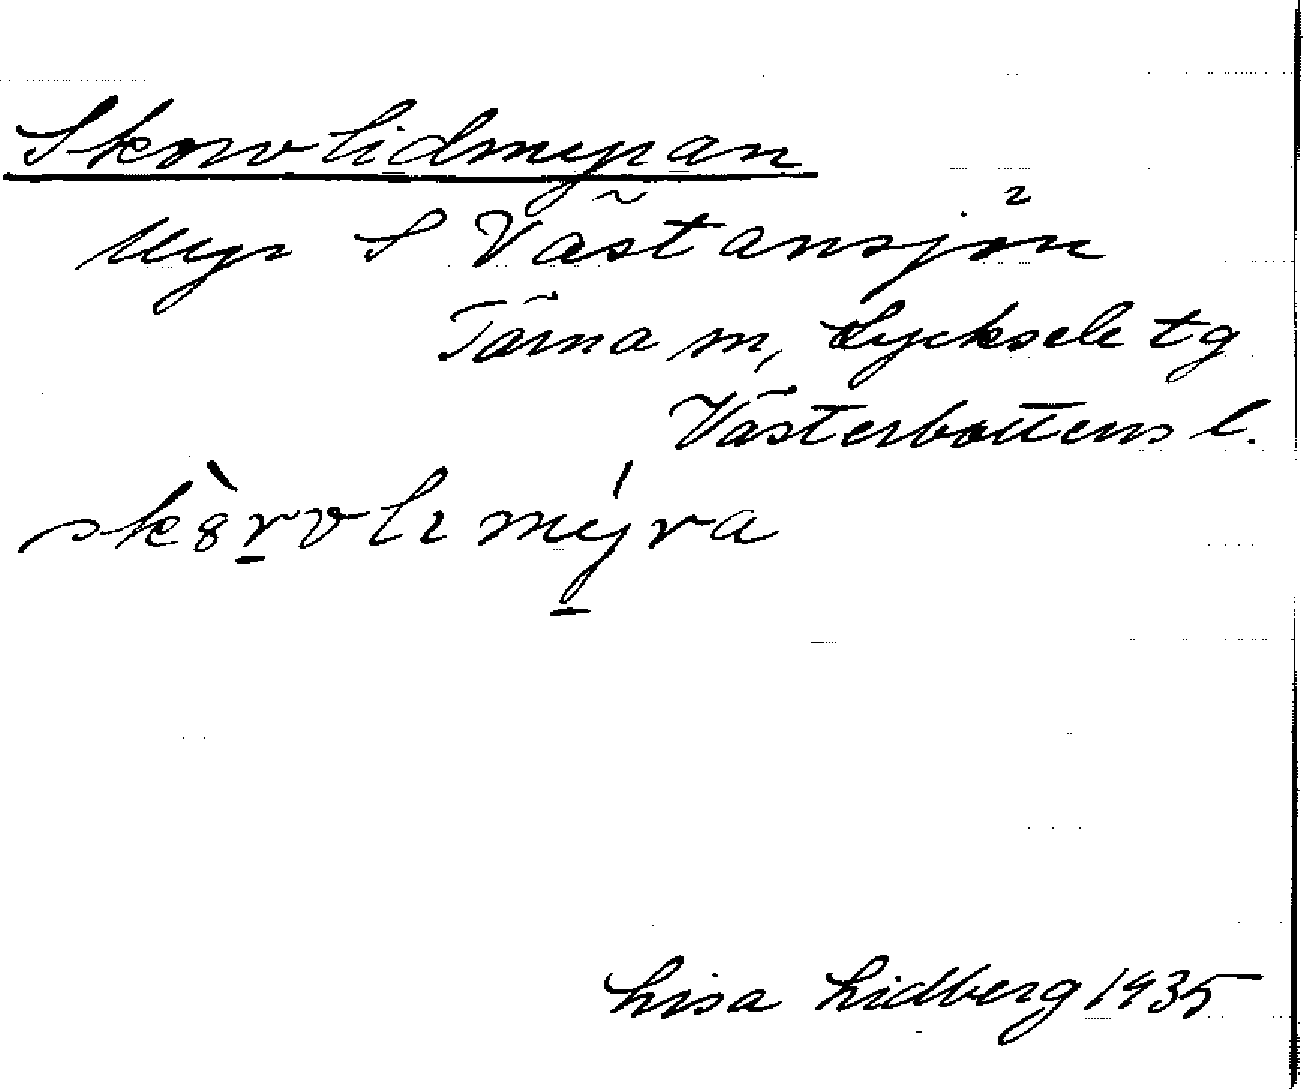 Skorvlidmyran
Myr S Västansjön 2
Tärna sn, Lycksele tg
Västerbottens l.
sk8̀rvlı mýra
Lisa Lidberg 1935